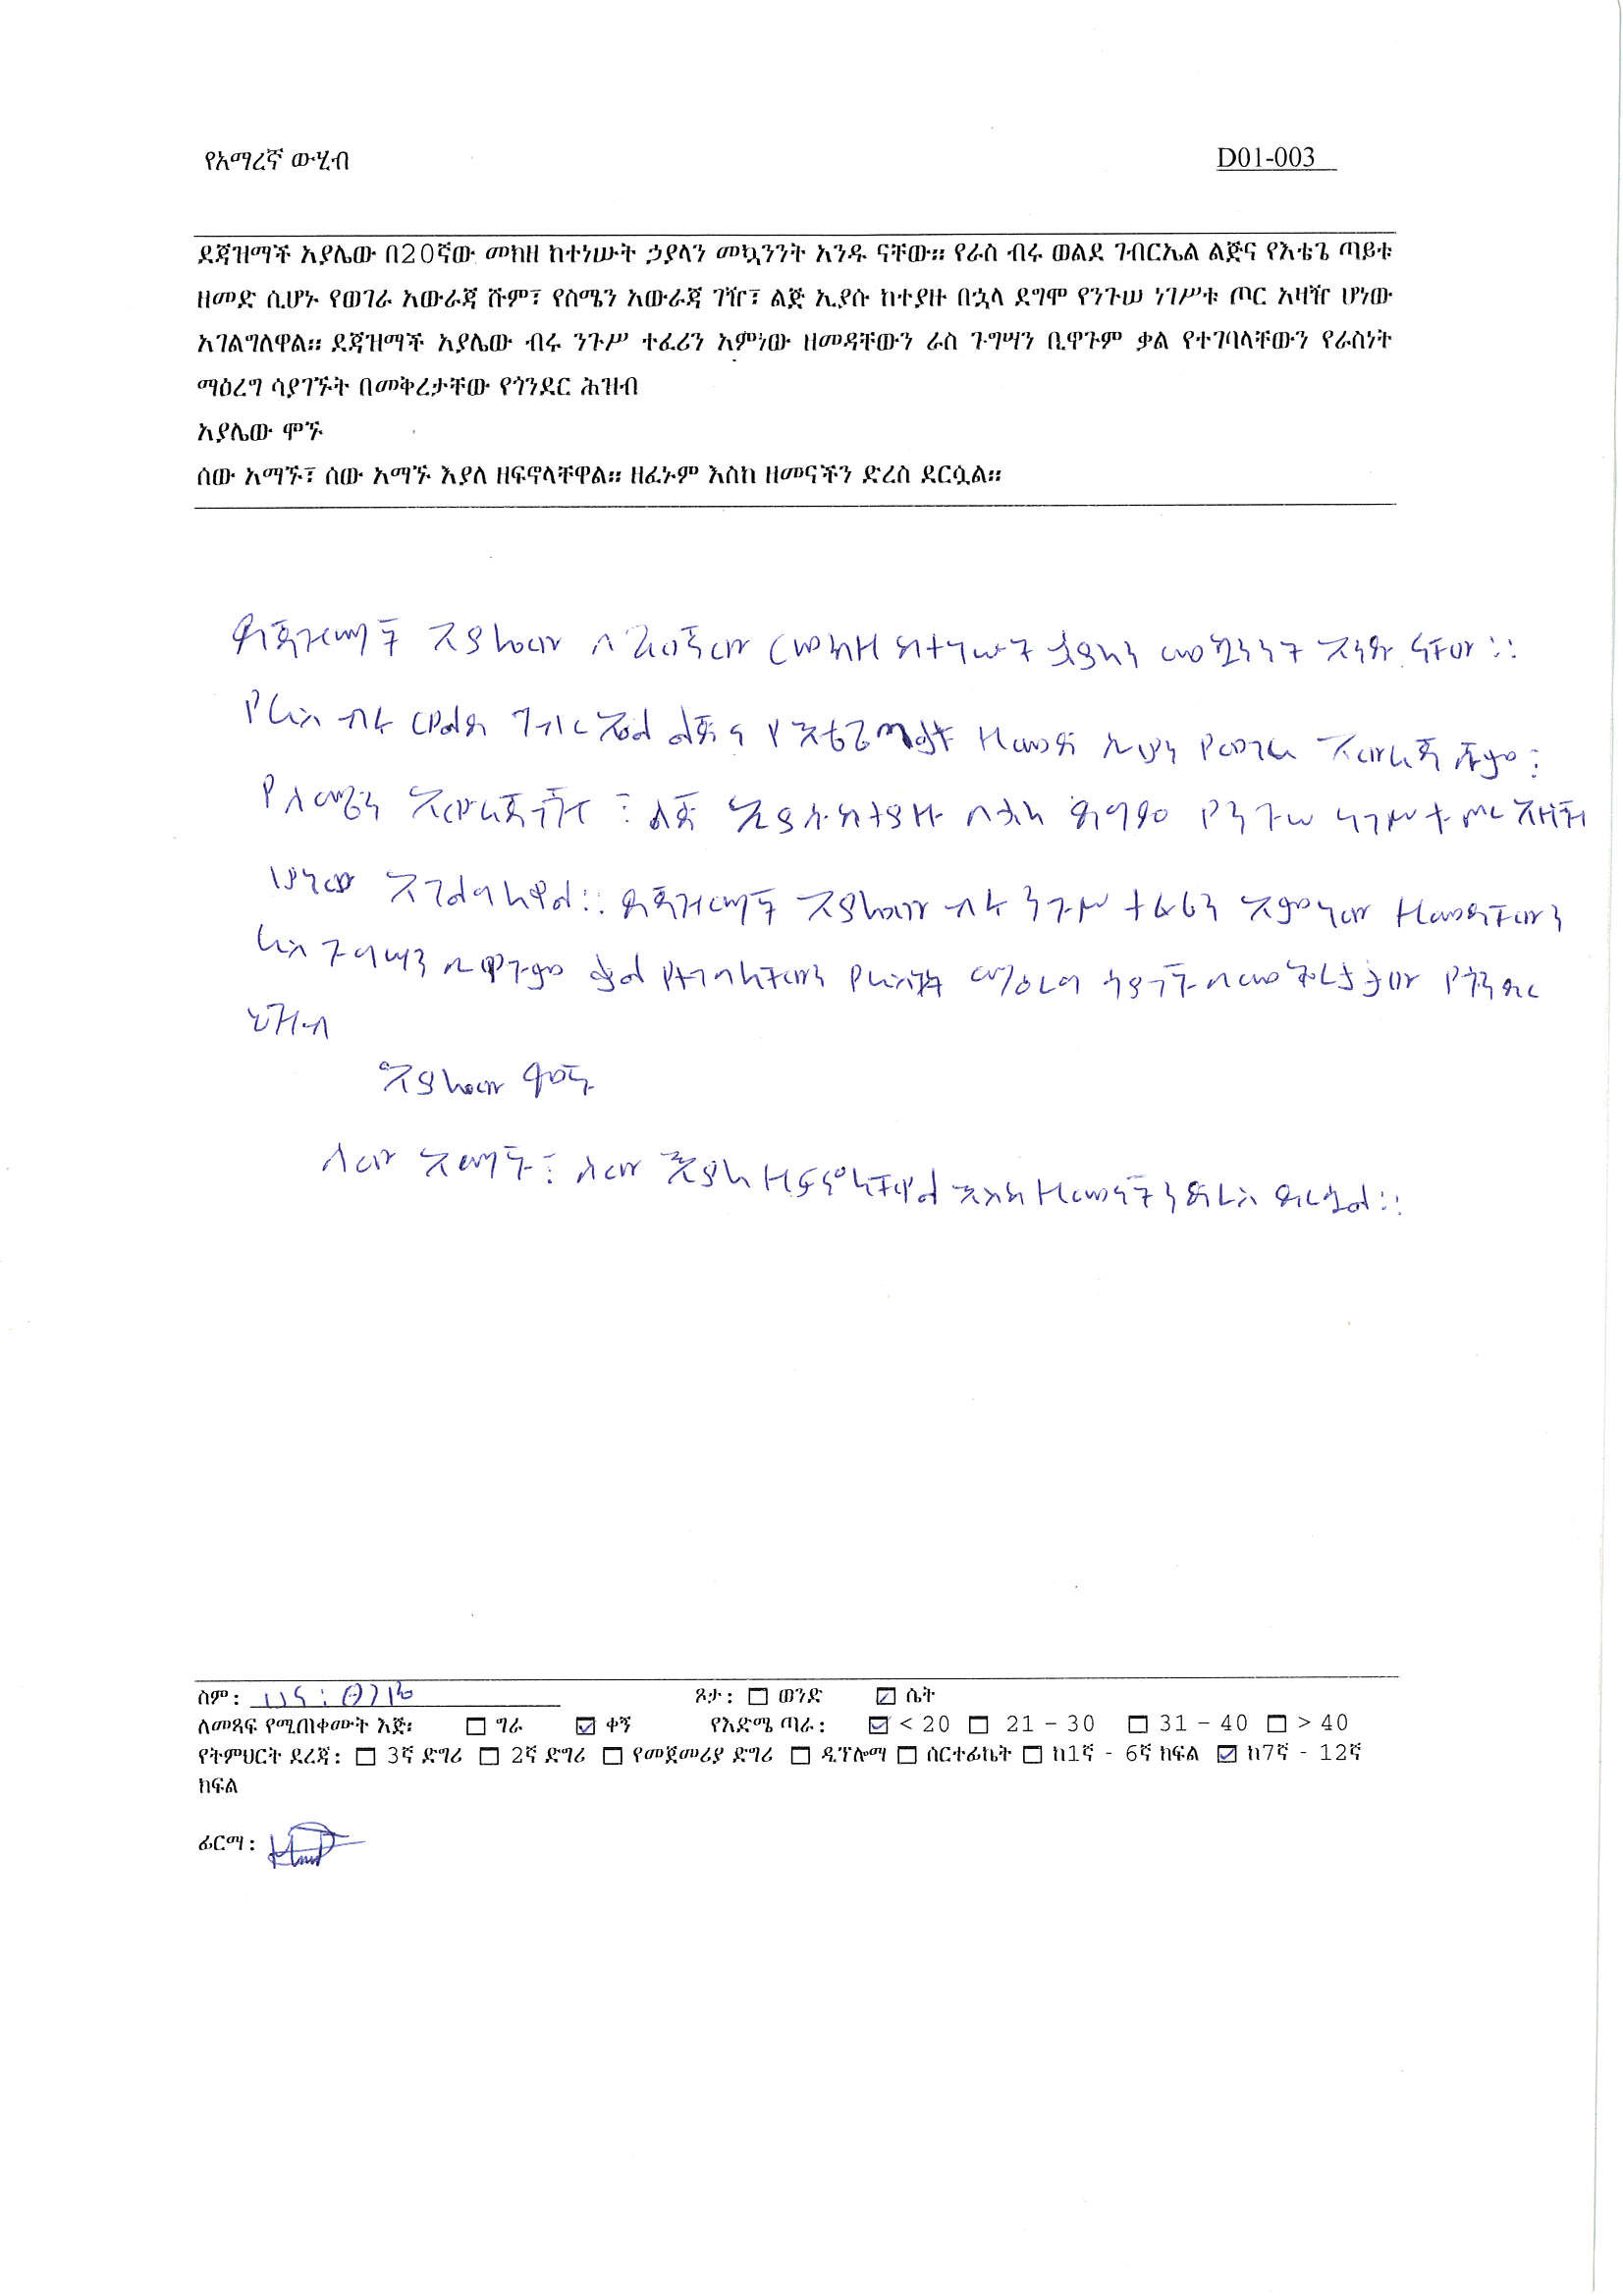 የአማረኛ ውሂብ D01-003
ደጃዝማች አያሌው በ20ኛው መክዘ ከተነሡት ኃያላን መኳንንት አንዱ ናቸው። የራስ ብሩ ወልደ ገብርኤል ልጅና የእቴጌ ጣይቱ
ዘመድ ሲሆኑ የወገራ አውራጃ ሹም፣ የስሜን አውራጃ ገዥ፣ ልጅ ኢያሱ ከተያዙ በኋላ ደግሞ የንጉሠ ነገሥቱ ጦር አዛዥ ሆነው
አገልግለዋል። ደጃዝማች አያሌው ብሩ ንጉሥ ተፈሪን አምነው ዘመዳቸውን ራስ ጉግሣን ቢዋጉም ቃል የተገባላቸውን የራስነት
ማዕረግ ሳያገኙት በመቅረታቸው የጎንደር ሕዝብ
አያሌው ሞኙ
ሰው አማኙ፣ ሰው አማኙ እያለ ዘፍኖላቸዋል። ዘፈኑም እስከ ዘመናችን ድረስ ደርሷል።
ደጃዝማች አያሌው በ20ኛው መክዘ ከተነሡት ኃያላን መኳንንት አንዱ ናቸው።
የራስ ብሩ ወልደ ገብርኤል ልጅና የእቴጌ ጣይቱ ዘመድ ሲሆኑ የወገራ አውራጃ ሹም፣
የስሜን አውራጃ ገዥ ፣ ልጅ ኢያሱ ከተያዙ በኋላ ደግሞ የንጉሠ ነገሥቱ ጦር አዛዥ
ሆነው አገልግለዋል። ደጃዝማች አያሌው ብሩ ንጉሥ ተፈሪን አምነው ዘመዳቸውን
ራስ ጉግሣን ቢዋጉም ቃል የተገባላቸውን የራስነት ማዕረግ ሳያገኙ በመቅረታቸው የጎንደር
ህዝብ
አያሌው ሞኙ
ሰው አማኙ፣ ሰው እያለ ዘፍኖላቸዋል እስከ ዘመናችን ድረስ ደርሷል።
ስም: ጾታ: ወንድ ሴት
ለመጻፍ የሚጠቀሙት እጅ፡ ግራ ቀኝ የእድሜ ጣራ: < 20 21 – 30 31 – 40 > 40
የትምህርት ደረጃ: 3ኛ ድግሪ 2ኛ ድግሪ የመጀመሪያ ድግሪ ዲፕሎማ ሰርተፊኬት ከ1ኛ - 6ኛ ክፍል ከ7ኛ - 12ኛ
ክፍል
ፊርማ: